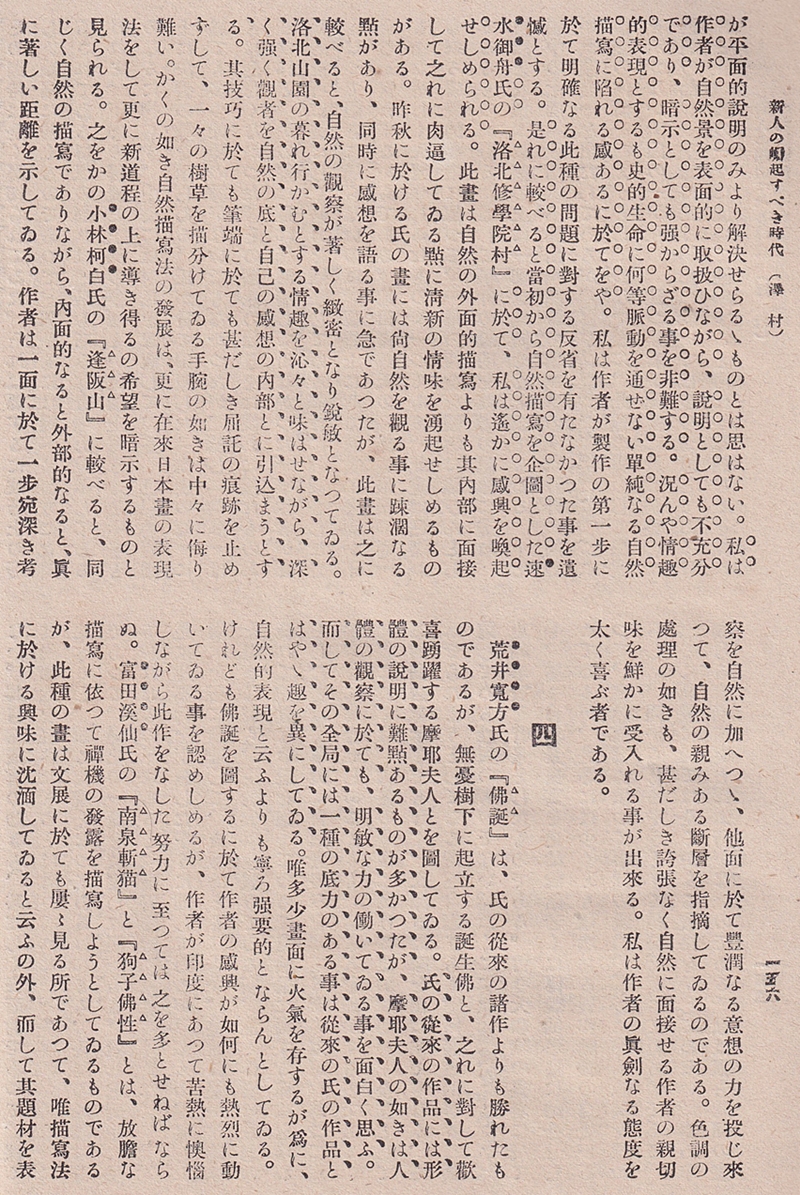 新人の蹶起すべき時代 （澤 村）
一五六
が平面的說明のみより解決せらるゝものとは思はない。私は
作者が自然景を表面的に取扱ひながら、說明としても不充分
であり、暗示としても强からざる事を非難する。況んや情趣
的表現とするも史的生命に何等脈動を通せない單純なる自然
描寫に陷れる感あるに於てをや。私は作者が製作の第一步に
於て明確なる此種の問題に對する反省を有たなかつた事を遺
憾とする。是れに較べると當初から自然描寫を企圖とした速
水御舟氏の『洛北修學院村』に於て、私は遙かに感興を喚起
せしめられる。此畫は自然の外面的描寫よりも其內部に面接
して之れに肉逼してゐる點に淸新の情味を湧起せしめるもの
がある。昨秋に於ける氏の畫には尙自然を觀る事に踈濶なる
點があり、同時に感想を語る事に急であつたが、此畫は之に
較べると、自然の觀察が著しく緻密となり銳敏となつてゐる。
洛北山園の暮れ行かむとする情趣を沁々と味はせながら、深
く强く觀者を自然の底と自己の感想の內部とに引込まうとす
る。其技巧に於ても筆端に於ても甚だしき屆託の痕跡を止め
ずして、一々の樹草を描分けてゐる手腕の如きは中々に侮り
難い。かくの如き自然描寫法の發展は、更に在來日本畫の表現
法をして更に新道程の上に導き得るの希望を暗示するものと
見られる。之をかの小林柯白氏の『逢阪山』に較べると、同
じく自然の描寫でありながら、內面的なると外部的なると、眞
に著しい距離を示してゐる。作者は一面に於て一步宛深き考
察を自然に加へつゝ、他面に於て豐潤なる意想の力を投じ來
つて、自然の親みある斷層を指摘してゐるのである。色調の
處理の如きも、甚だしき誇張なく自然に面接せる作者の親切
味を鮮かに受入れる事が出來る。私は作者の眞劍なる態度を
太く喜ぶ者である。
四
荒井寬方氏の『佛誕』は、氏の從來の諸作よりも勝れたも
のであるが、無憂樹下に起立する誕生佛と、之れに對して歡
喜踴躍する摩耶夫人とを圖してゐる。氏の從來の作品には形
體の說明に難點あるものが多かつたが、摩耶夫人の如きは人
體の觀察に於ても、明敏な力の働いてゐる事を面白く思ふ。
而してその全局には一種の底力のある事は從來の氏の作品と
はやゝ趣を異にしてゐる。唯多少畫面に火氣を存するが爲に、
自然的表現と云ふよりも寧ろ强要的とならんとしてゐる。
けれども佛誕を圖するに於て作者の感興が如何にも熱烈に動
いてゐる事を認めしめるが、作者が印度にあつて苦熱に懊惱
しながら此作をなした努力に至つては之を多とせねばなら
ぬ。富田溪仙氏の『南泉斬猫』と『狗子佛性』とは、放膽な
描寫に依つて禪機の發露を描寫しようとしてゐるものである
が、此種の畫は文展に於ても屢〻見る所であつて、唯描寫法
に於ける興味に沈湎してゐると云ふの外、而して其題材を表